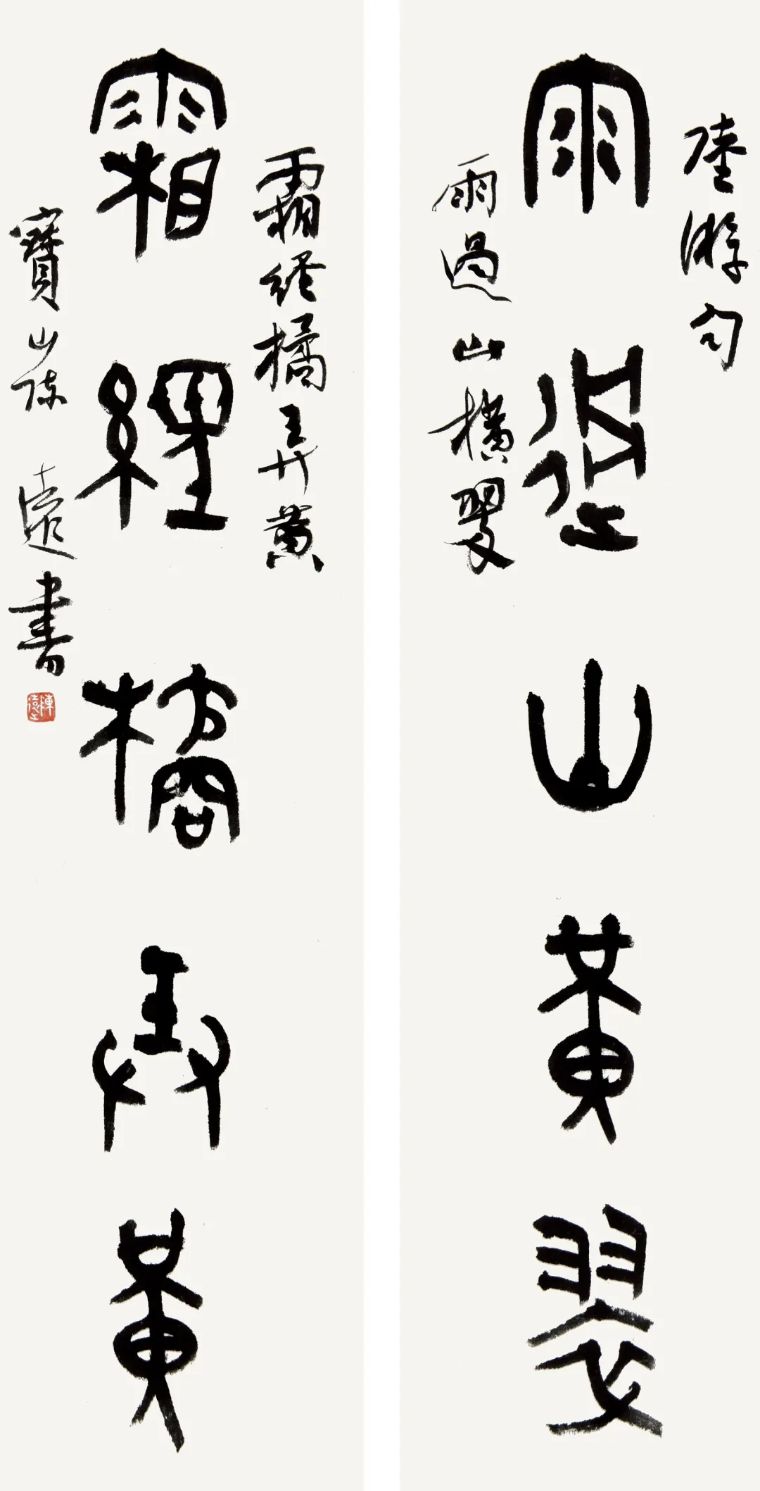 陸游句
雨過山黃翠
雨過山橫翠
霜經橘弄黃
霜經橘弄黃
寶山陳遠書